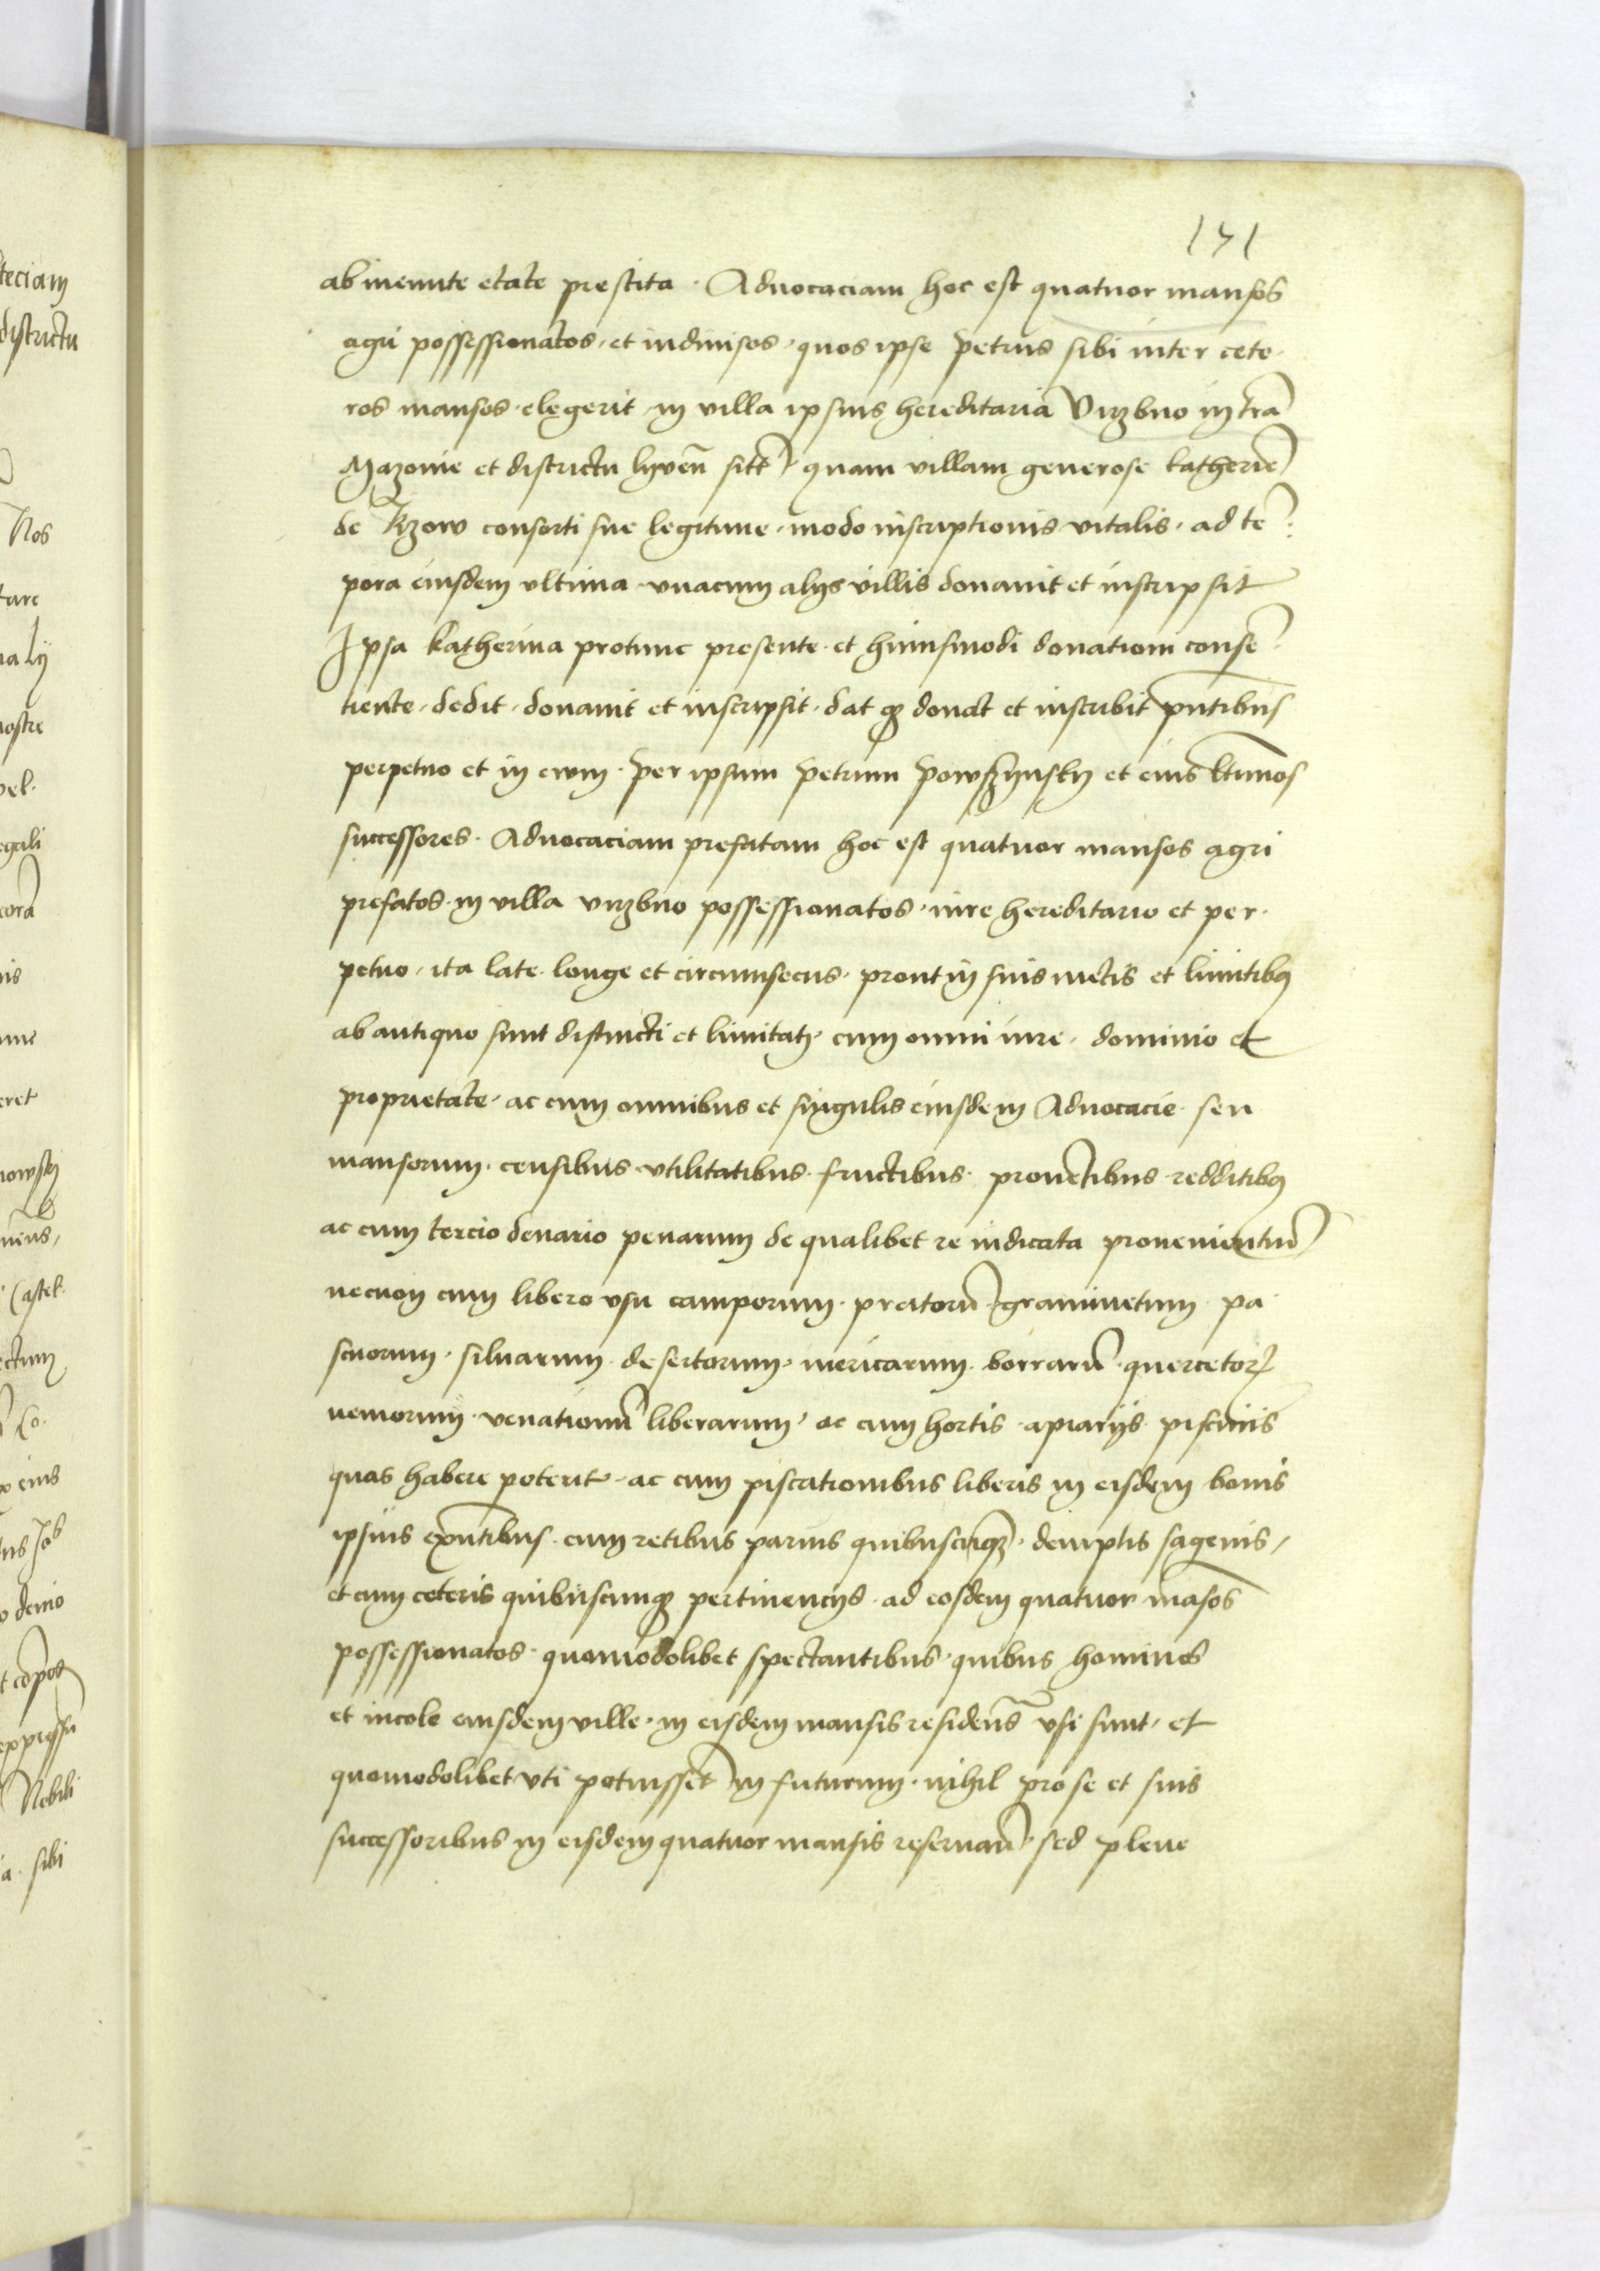 171
ab ineunte etate prestita · Aduocaciam hoc est quatuor mansos
agri possessionatos · et indiuisos · quos ipse Petrus sibi inter cete·
ros mansos elegerit in villa ipsius hereditaria Virzbno in tra̅
Mazouie et districtu lyven̅ sitt̅ quam villam generose katherine̅
de Kzow consorti sue legitime · modo inscriptionis vitalis · ad te̅
pora eiusdem vltima vnacum alijs villis donauit et inscripsit
Ipsa Katherina protunc presente · et huiusmodi donationi conse̅
tiente · dedit · donauit et inscripsit · dat qȝ donat et inscribit pn̅tibus
perpetuo et in ewm · per ipsum Petrum Powszynsky et eius l̅timos
successores · Aduocaciam prefatam hoc est quatuor mansos agri
prefatos in villa virzbno possessionatos · iure hereditario et per·
petuo · ita late longe et circumsecus · prout in suis metis et limitibȝ
ab antiquo sunt distincti et limitati cum omni iure · dominio et
proprietate · ac cum omnibus et singulis eiusdem Aduocacie seu
mansorum · censibus vtilitatibus fructibus · prouentibus redditibȝ
ac cum tercio denario penarum de qualibet re iudicata prouenientiu̅
necnon cum libero vsu camporum · pratoru̅ · graminetum pa
scuorum · siluarum desertorum · mericarum · borraru̅ · quercetorꝝ
nemorum · venationu̅ liberarum · ac cum hortis · apiarijs piscinis
quas habere poterit · ac cum piscationibus liberis in eisdem bonis
ipsius exn̅tibus · cum retibus paruis quibuscu̅qȝ · demptis sagenis,
et cum ceteris quibuscumqȝ pertinencijs · ad eosdem quatuor ma̅sos
possessionatos · quomodolibet spectantibus · quibus homines
et incole eiusdem ville · in eisdem mansis residen̅s vsi sunt · et
quomodolibet vti potuisset̅ in futurum · nihil pro se et suis
successoribus in eisdem quatuor mansis reseruan̅ · sed plene